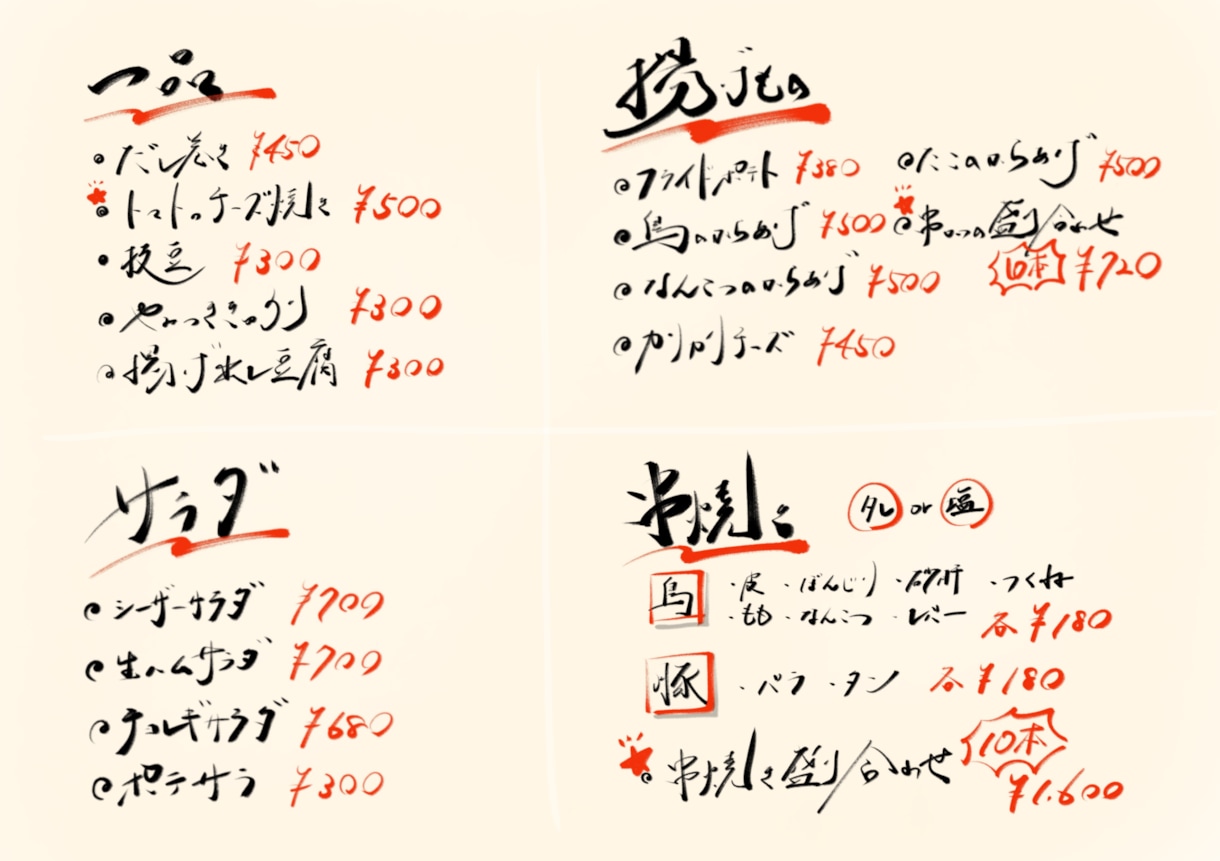 一品
だし巻き ¥450
トマトのチーズ焼き ¥500
枝豆 ¥300
やみつききゅうり ¥300
揚げ出し豆腐 ¥300
揚げもの
フライドポテト ¥380
鳥のからあげ ¥500
なんこつのからあげ ¥500
かりかりチーズ ¥450
たこのからあげ ¥500
串かつの盛り合わせ
6本 ¥720
サラダ
シーザーサラダ ¥700
生ハムサラダ ¥700
チョレギサラダ ¥680
ポテサラ ¥300
串焼き タレ or 塩
鳥 ・皮 ・ぼんじり ・砂肝 ・つくね
・もも ・なんこつ ・レバー 各¥180
豚 ・バラ ・タン 各¥180
串焼き盛り合わせ 10本
¥1,600